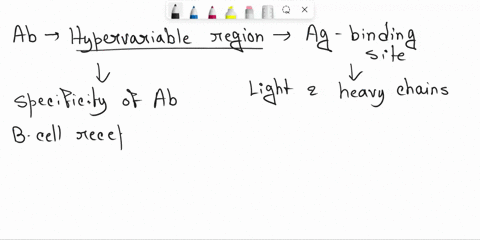 Ab → Hypervariable region → Ag-binding site
↓ ↓
Specificity of Ab Light & heavy chains
B-cell recep